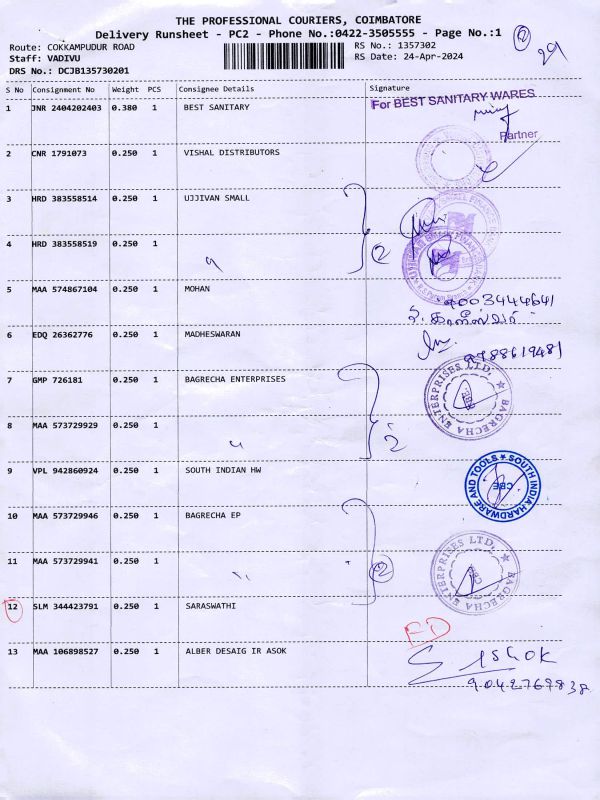 THE PROFESSIONAL COURIERS, COIMBATORE
Delivery Runsheet - PC2 - Phone No.:0422-3505555 - Page No.:1
2
29
Route: COKKAMPUDUR ROAD
RS No.: 1357302
Staff: VADIVU
RS Date: 24-Apr-2024
DRS No.: DCJB135730201
S No Consignment No Weight PCS Consignee Details Signature
1 JNR 2404202403 0.380 1 BEST SANITARY
For BEST SANITARY WARES
Partner
2 CNR 1791073 0.250 1 VISHAL DISTRIBUTORS
3 HRD 383558514 0.250 1 UJJIVAN SMALL
4 HRD 383558519 0.250 1
2
5 MAA 574867104 0.250 1 MOHAN
9003444641
6 EDQ 26362776 0.250 1 MADHESWARAN
9788619481
7 GMP 726181 0.250 1 BAGRECHA ENTERPRISES
BAGRECHA ENTERPRISES LTD.
CBE
8 MAA 573729929 0.250 1
2
9 VPL 942860924 0.250 1 SOUTH INDIAN HW
SOUTH INDIA HARDWARE AND TOOLS
CBE
10 MAA 573729946 0.250 1 BAGRECHA EP
11 MAA 573729941 0.250 1
2
BAGRECHA ENTERPRISES LTD.
CBE
12 SLM 344423791 0.250 1 SARASWATHI
FD
13 MAA 106898527 0.250 1 ALBER DESAIG IR ASOK
ASHOK
9042769838